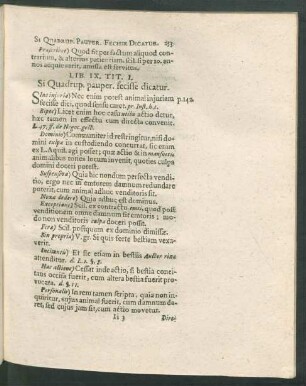 SI QUADRUP. PAUPER. FECISSE DICATUR. 253
Quod fit per factum aliquod con-
trarium, & alterius patientiam,
annos
LIB. IX. TIT. I.
Si Quadrup. pauper. fecisse dicatur.
Sine injuria) Nec enim potest animal injuriam p. 242.
fecisse dici, quod sensu caret. pr. Inst. h. t.
Licet enim hoc casu actio detur,
hæc tamen in effectu cum directa convenit.
ff. de Negot. gest.
Dominio) Communiter id restringitur, nisi domi-
ni culpa in custodiendo concurrat, sic enim
ex L. Aquil. agi posset; quæ actio & in mansuetis
animalibus toties locum invenit, quoties culpa
domini doceri potest.
Suspensura) Quia hic nondum perfecta vendi-
tio, ergo nec in emtorem damnum redundare
poterit, cum dominus adhuc sit venditor.
Noxa dedere) Quia adhuc est dominus.
Receptione) Scil. ex contractu emti, quod post
venditionem omne damnum sit emtoris; modo
non venditoris culpa doceri posse.
Fera) Scil. posquam ex dominio dimisse.
Ein proprio) V. gr. Si quis forte bestiam vexa-
verit.
Incitantis) Et sic etiam in bestiis Auctor rixæ
attenditur. d. L. 1. §.
Hac actione) Cessat inde actio, si bestia conci-
tans occisa fuerit, cum altera bestia fuerit pro-
vocata. d. §. 11.
Personalis) In rem tamen scripta, quia non in-
quiritur, cujus animal fuerit, cum damnum da-
ret, sed cujus jam sit, cum actio movetur.
Ii 3 Direc